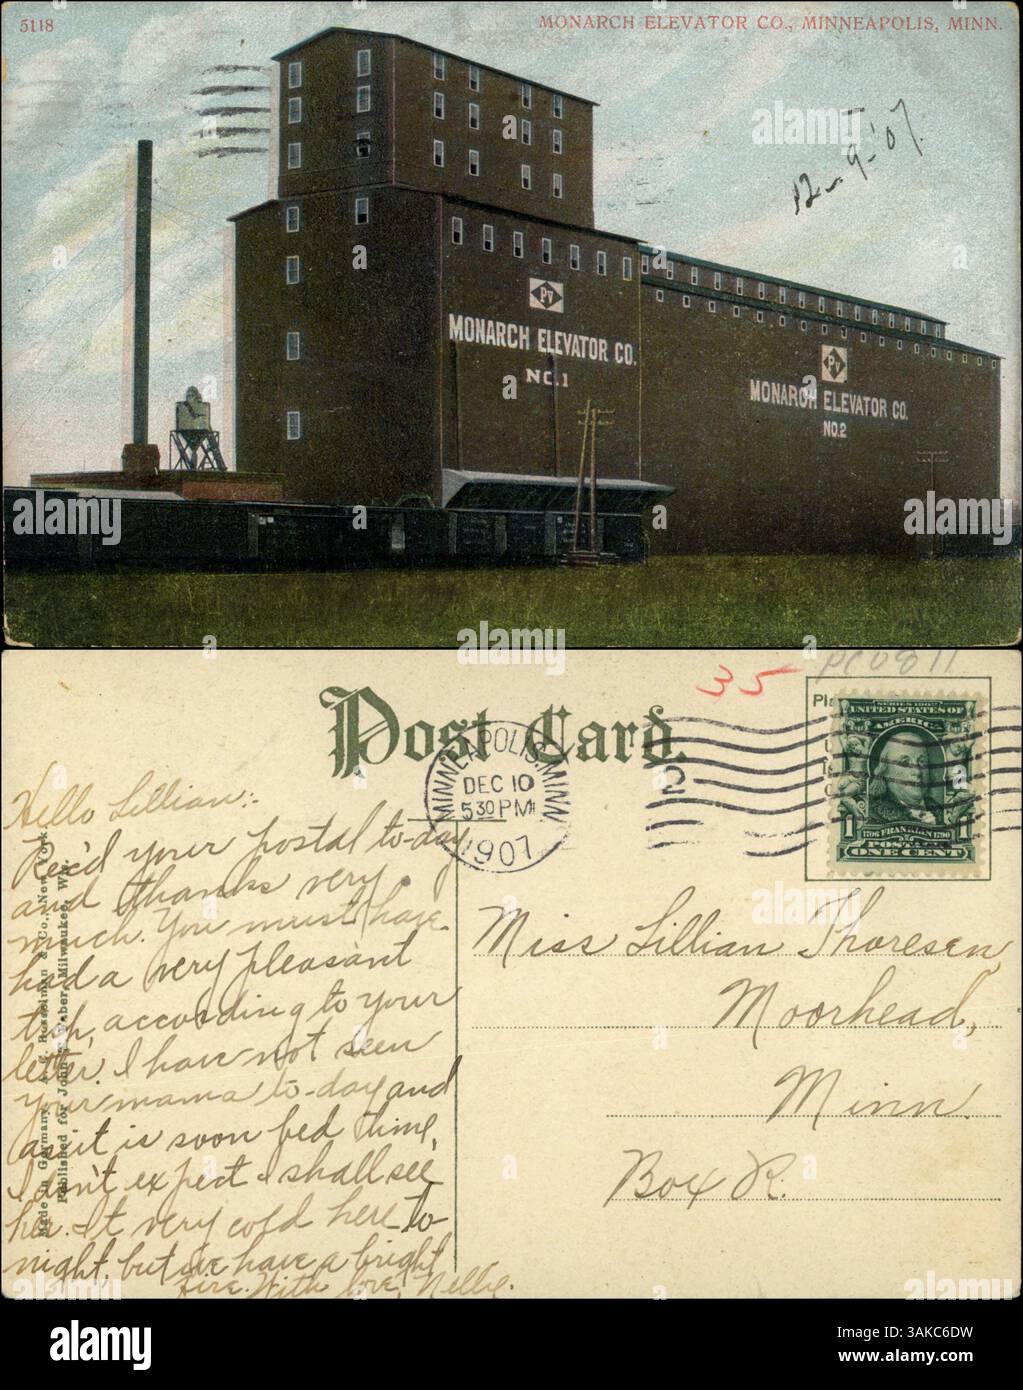 5118
MONARCH ELEVATOR CO., MINNEAPOLIS, MINN.
12-9-'07.
PV
MONARCH ELEVATOR CO.
NO.1
PV
MONARCH ELEVATOR CO.
NO.2
35
PC0811
Post Card.
MINNEAPOLIS, MINN.
DEC 10
5 30 PM
1907
2
SERIES 1902
UNITED STATES OF
AMERICA
1706 FRANKLIN 1790
1 POSTAGE 1
ONE CENT
Hello Lillian:-
Rec'd your postal to-day
and thanks very
much. You must have
had a very pleasant
trip, according to your
letter. I have not seen
your mama to-day and
as it is soon bed time,
I don't expect I shall see
her. It very cold here to-
night, but we have a bright
fire. With love, Nellie.
Made in Germany. A. C. Bosselman & Co., New York
Published for John Faber, Milwaukee, Wis.
Miss Lillian Thoresen,
Moorhead,
Minn.
Box R.
alamy
Image ID: 3AKC6DW
www.alamy.com